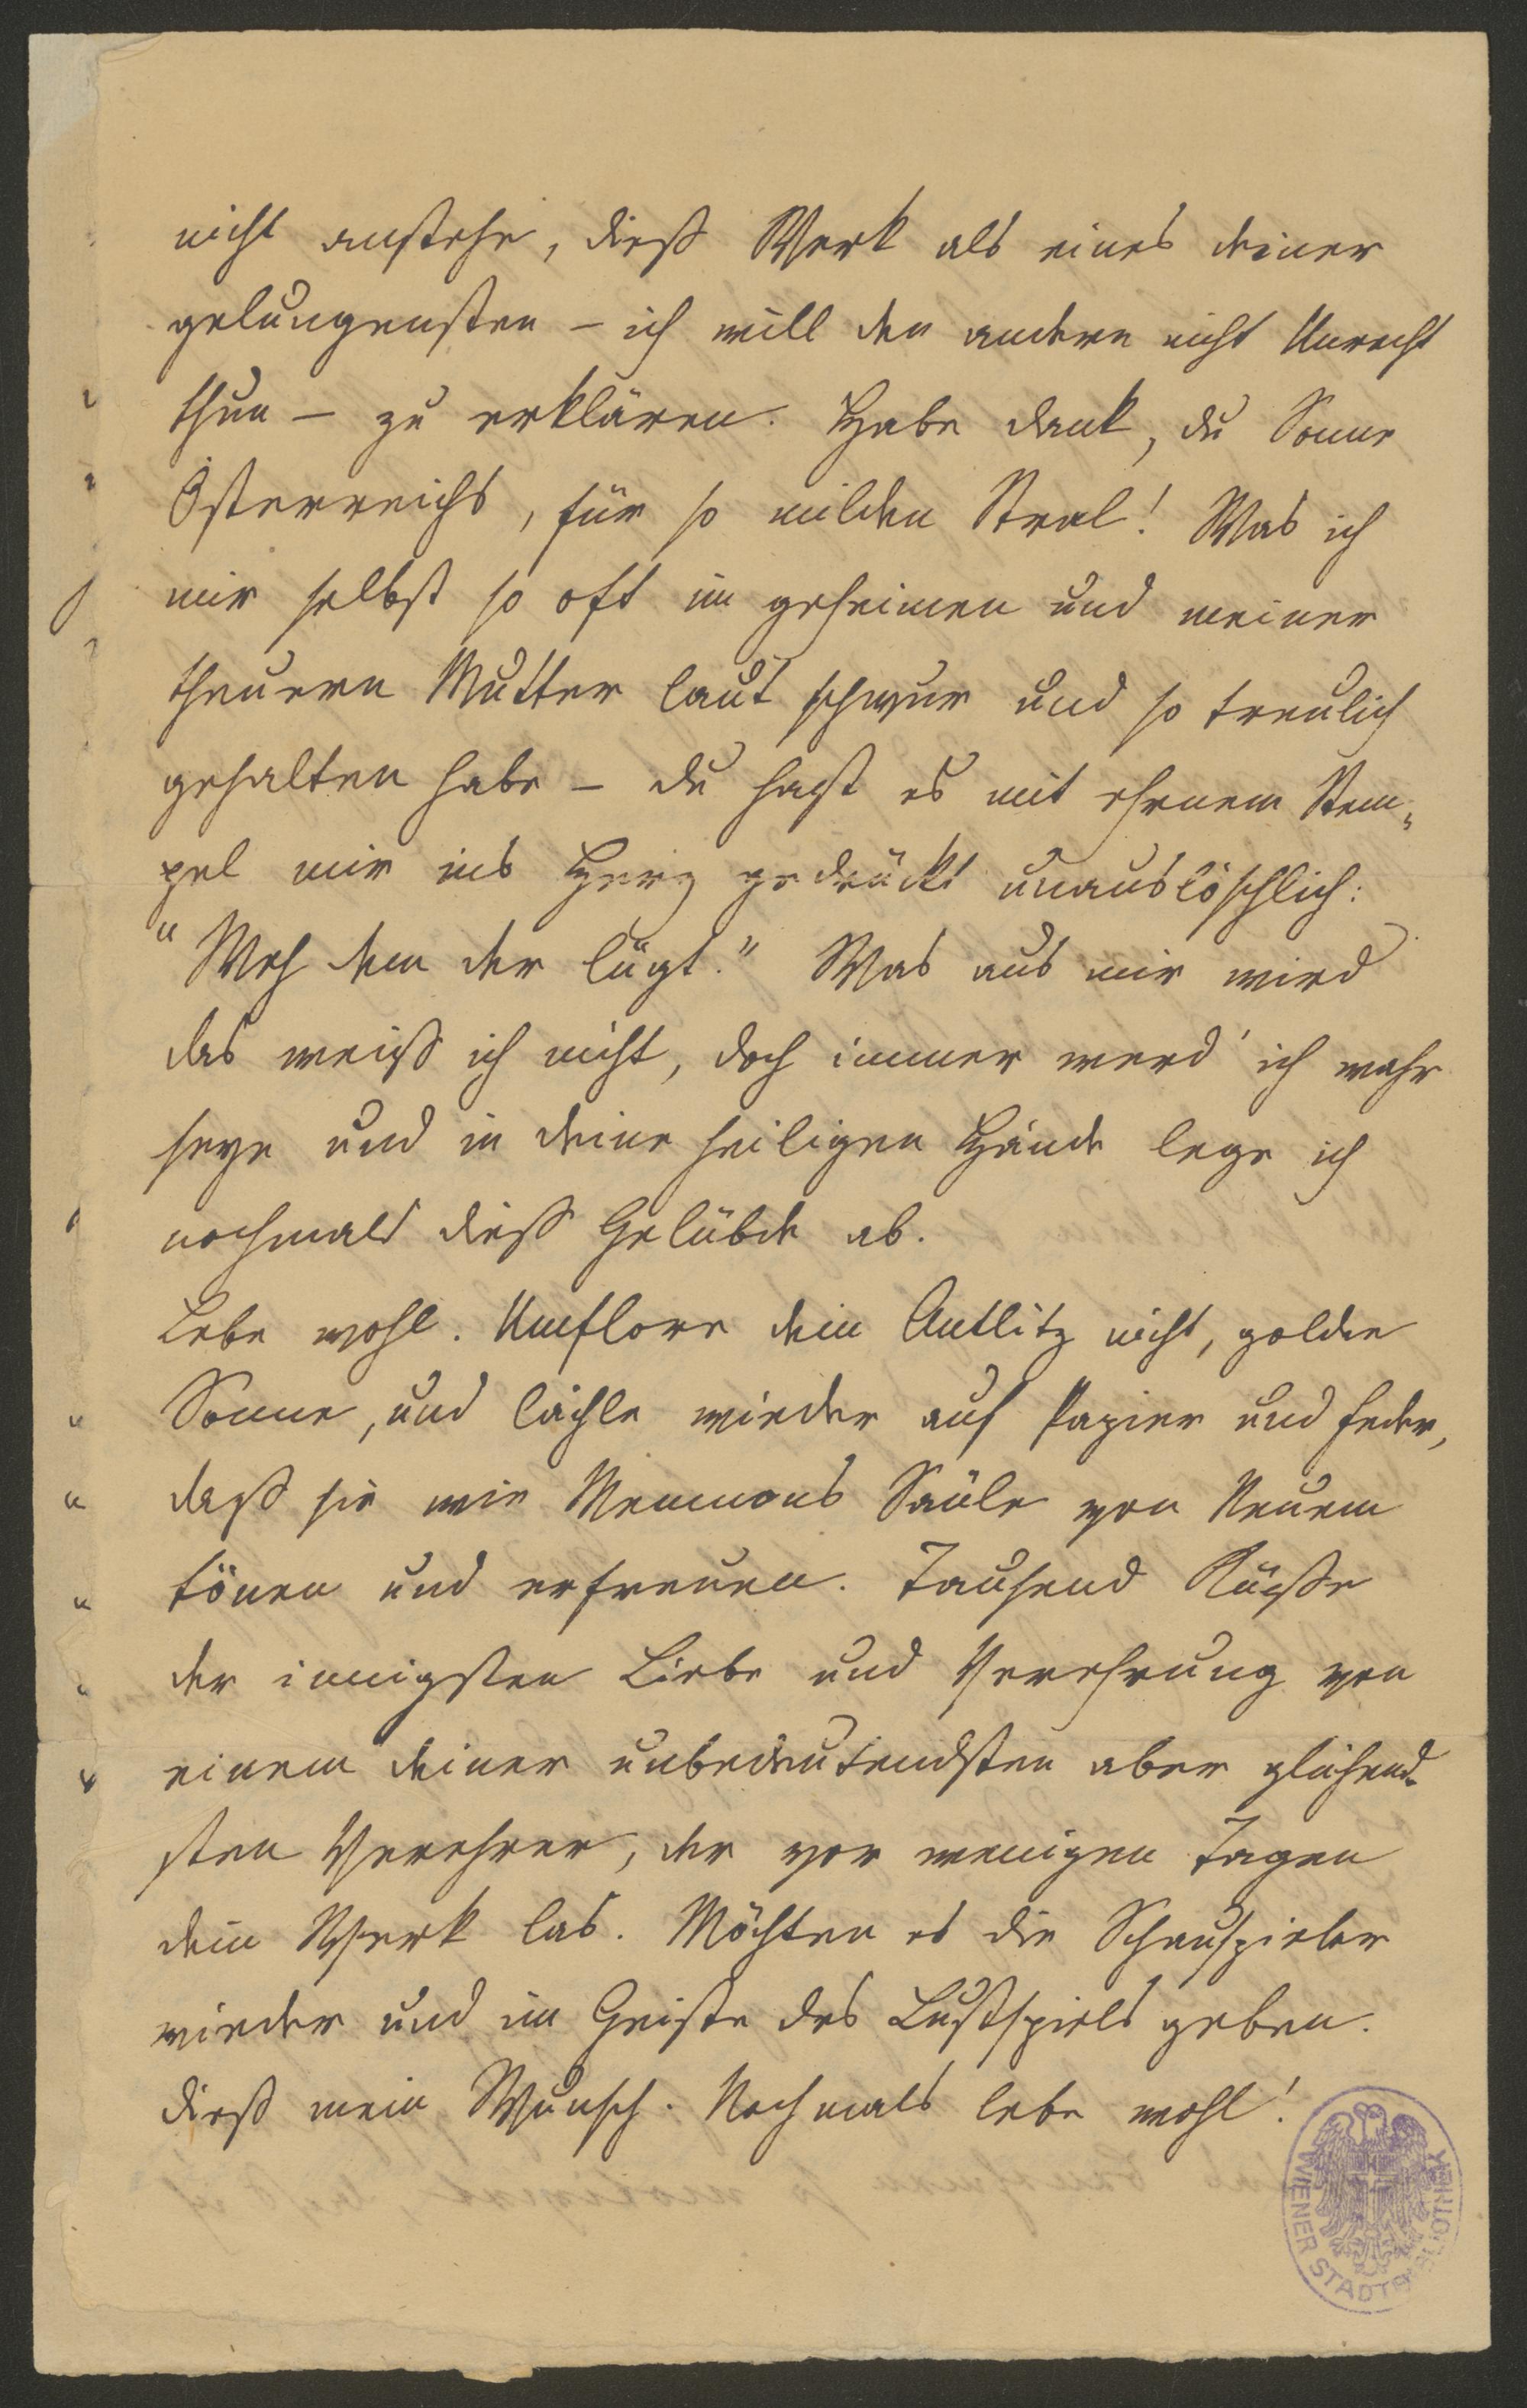 nicht anstehe, dieß Werk als eines deiner
gelungensten – ich will den andern nicht Unrecht
thun – zu erklären. Habe dank, du Sonne
Österreichs, für so milden Stral! Was ich
mir selbst so oft im geheimen und meiner
theuern Mutter laut schwur und so treulich
gehalten habe – du hast es mit ehrnem Stem„
pel mir ins Herz gedrückt unauslöschlich:
"Weh dem der lügt." Was aus mir wird
das weiß ich nicht, doch immer werd' ich wahr
seyn und in deine heiligen Hände lege ich
nochmals dieß Gelübde ab.
Lebe wohl. Umflore dein Antlitz nicht, goldne
Sonne, und lächle wieder auf Papier und Feder,
daß sie wie Memnons Säule von Neuem
tönen und erfreuen. Tausend Küße
der innigsten Liebe und Verehrung von
einem deiner unbedeutendsten aber glühend-
sten Verehrer, der vor wenigen Tagen
dein Werk las. Möchten es die Schauspieler
wieder und im Geiste des Lustspiels geben.
dieß mein Wunsch. Nochmals lebe wohl!
WIENER STADTBIBLIOTHEK